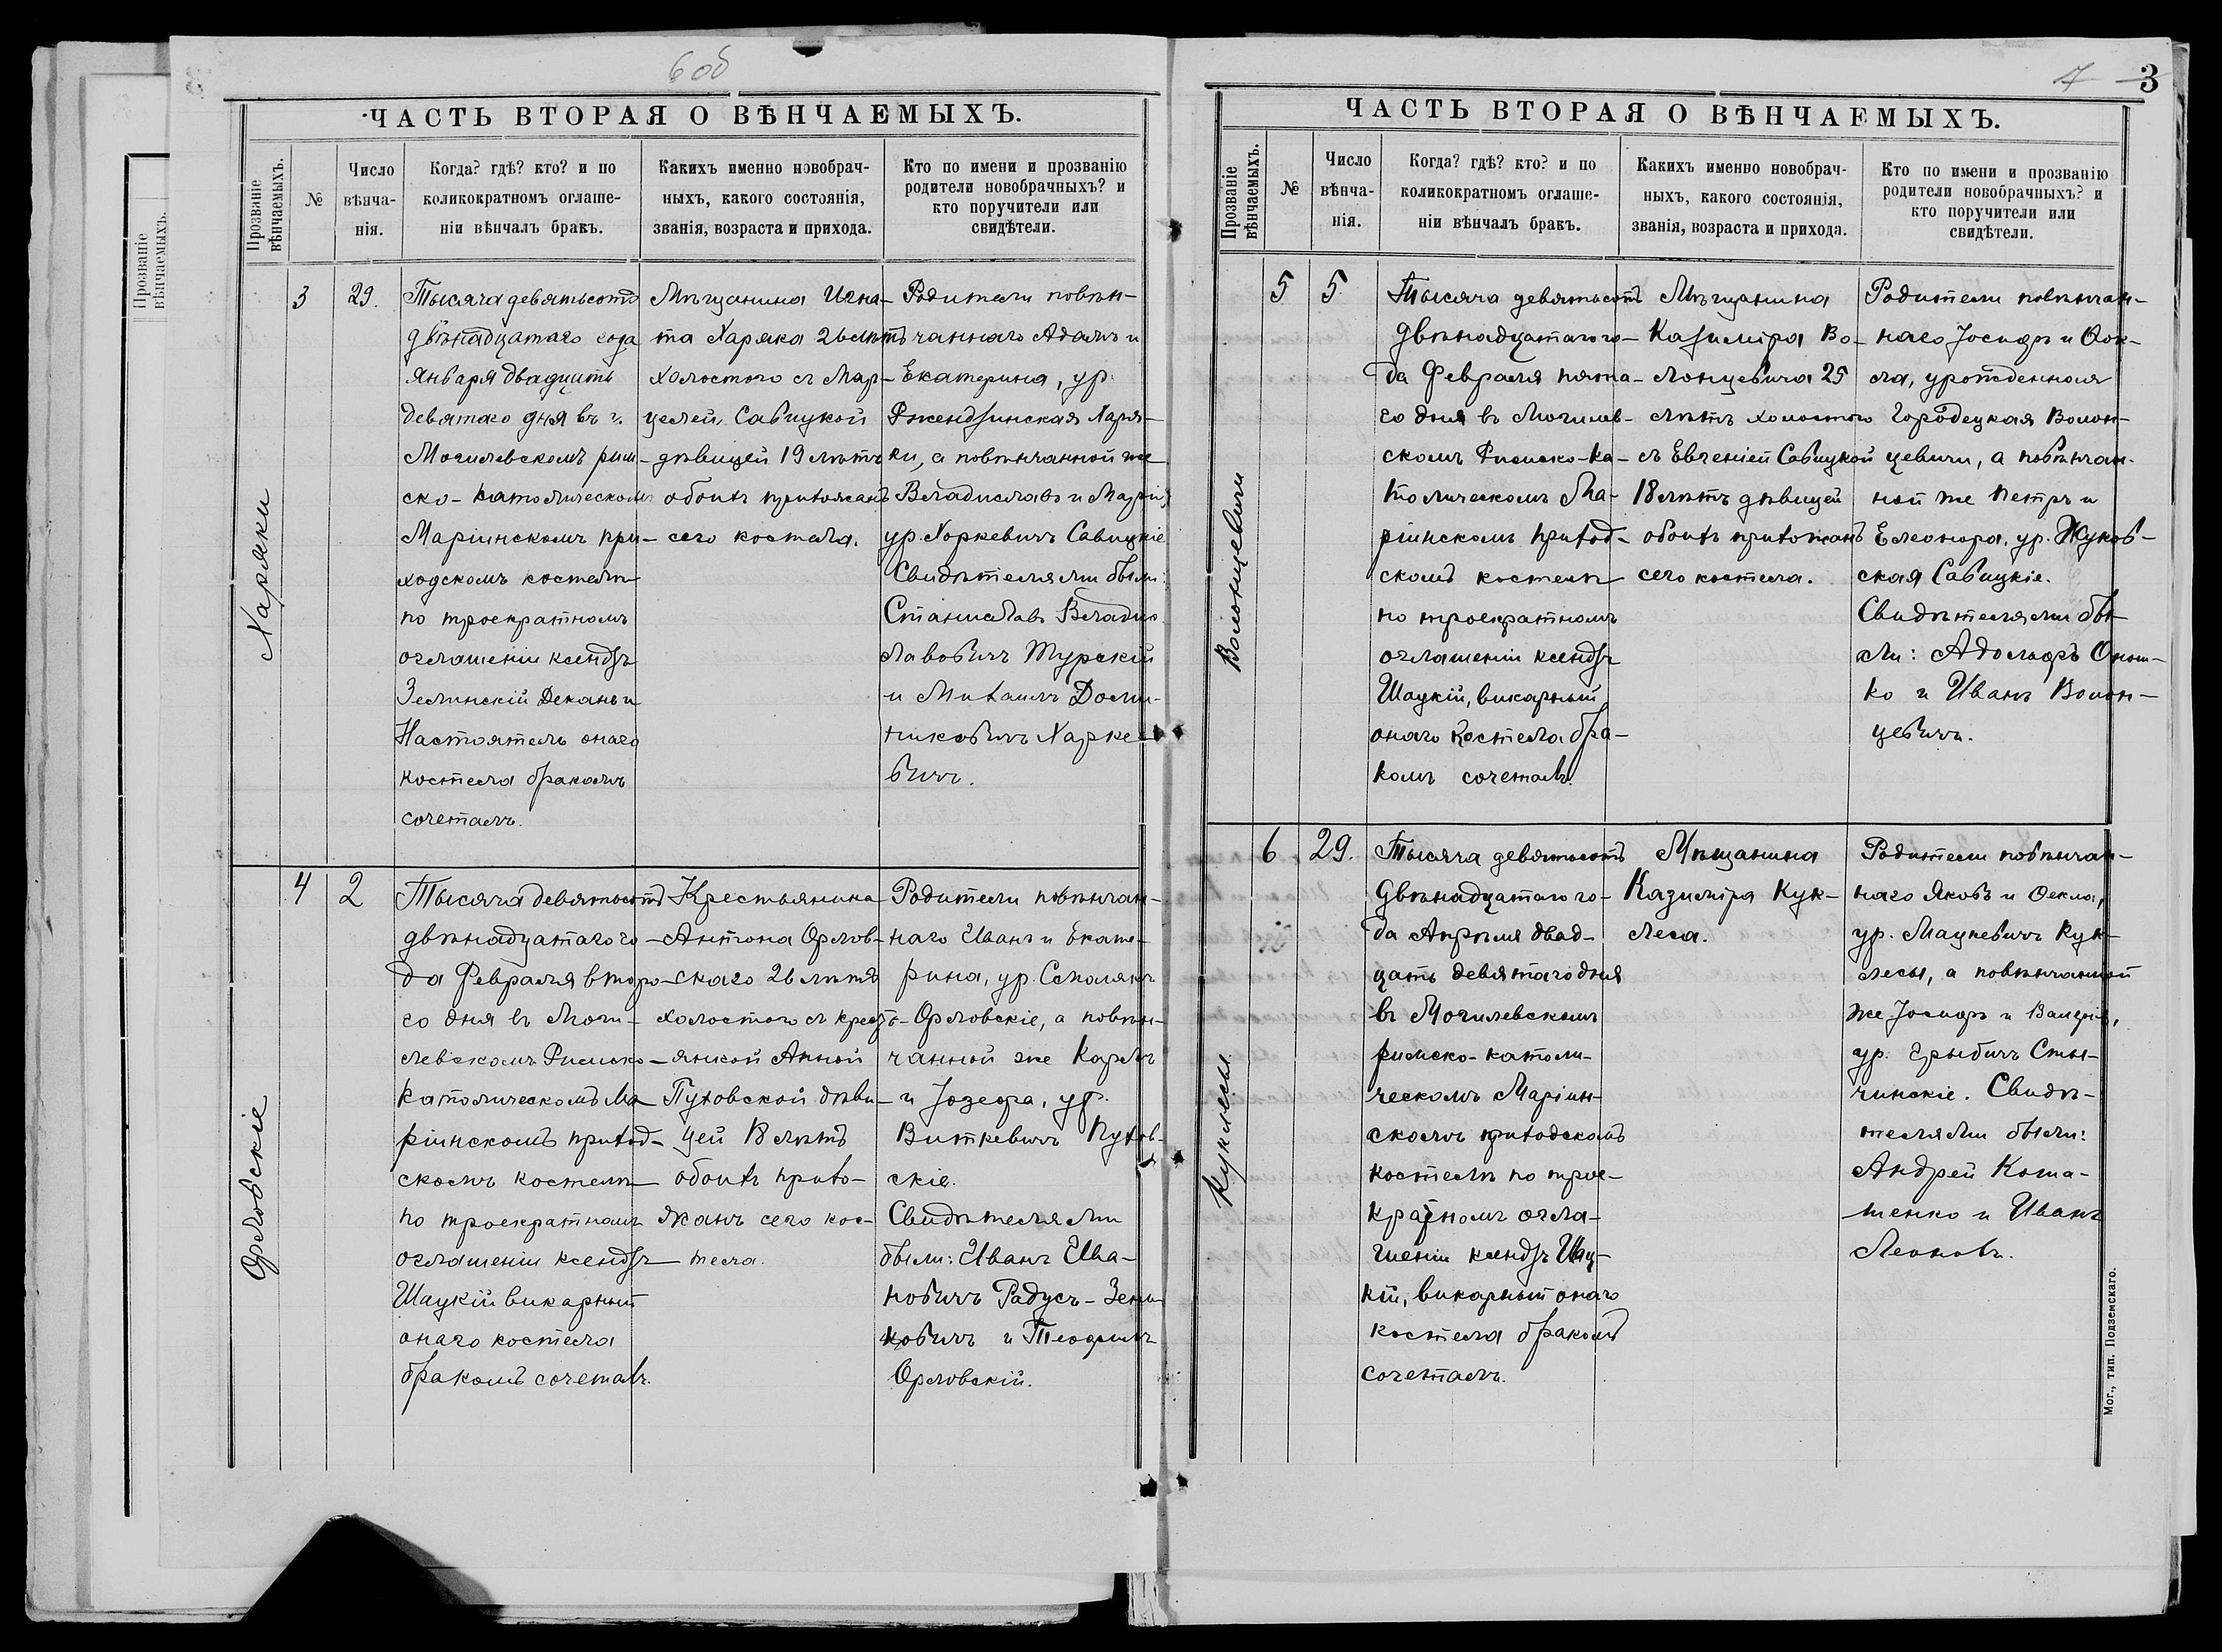 6 об
ЧАСТЬ ВТОРАЯ О ВѢНЧАЕМЫХЪ.
Прозваніе вѣнчаемыхъ.
№
Число вѣнча-
нія.
Когда? гдѣ? кто? и по
коликократномъ оглаше-
ніи вѣнчалъ бракъ.
Какихъ именно новобрач-
ныхъ, какого состоянія,
званія, возраста и прихода.
Кто по имени и прозванію
родители новобрачныхъ? и
кто поручители или
свидѣтели.
Харяки
3
29.
Тысяча девятьсотъ
двѣнадцатаго года
Января двадцать
девятаго дня въ г.
Могилевскомъ рим-
ско-католическомъ
Маріинскомъ при-
ходскомъ костелѣ
по троекратномъ
оглашеніи ксендзъ
Зелинскій Деканъ и
Настоятель онаго
костела бракомъ
сочеталъ.
Мѣщанина Игна-
та Харяка 26 лѣтъ
холостого съ Мар-
целей Савицкой
дѣвицей 19 лѣтъ
обоихъ прихожанъ
сего костела.
Родители повѣн-
чаннаго Адамъ и
Екатерина, ур.
Ржендзинская Харя-
ки, а повѣнчанной же
Владиславъ и Марія,
ур. Харкевичъ Савицкіе
Свидѣтелями были:
Станиславъ Владис-
лавовичъ Турскій
и Михаилъ Доми-
никовичъ Харке-
вичъ.
Орловскіе
4
2
Тысяча девятьсотъ
двѣнадцатаго го-
да Февраля второ-
го дня въ Моги-
левскомъ Римско-
католическомъ Ма-
ріинскомъ приход-
скомъ костелѣ
по троекратномъ
оглашеніи ксендзъ
Шацкій викарный
онаго костела
бракомъ сочеталъ.
Крестьянина
Антона Орлов-
скаго 26 лѣтъ
холостого съ кресть-
янкой Анной
Пуховской дѣви-
цей 18 лѣтъ
обоихъ прихо-
жанъ сего кос-
тела.
Родители повѣнчан-
наго Иванъ и Екате-
рина, ур. Смолякъ
Орловскіе, а повѣн-
чанной же Карлъ
и Іозефа, ур.
Виткевичъ Пухов-
скіе.
Свидѣтелями
были: Иванъ Ива-
новичъ Радусъ-Зень-
ковичъ и Теофилъ
Орловскій.
7 3
ЧАСТЬ ВТОРАЯ О ВѢНЧАЕМЫХЪ.
Прозваніе вѣнчаемыхъ.
№
Число
вѣнча-
нія.
Когда? гдѣ? кто? и по
коликократномъ оглаше-
ніи вѣнчалъ бракъ.
Какихъ именно новобрач-
ныхъ, какого состоянія,
званія, возраста и прихода.
Кто по имени и прозванію
родители новобрачныхъ? и
кто поручители или
свидѣтели.
Волонцевичи
5
5
Тысяча девятьсотъ
двѣнадцатаго го-
да Февраля пята-
го дня въ Могилев-
скомъ Римско-ка-
толическомъ Ма-
ріинскомъ приход-
скомъ костелѣ
по троекратномъ
оглашеніи ксендзъ
Шацкій, викарный
онаго костела бра-
комъ сочеталъ.
Мѣщанина
Казиміра Во-
лонцевича 25
лѣтъ холостого
съ Евгеніей Савицкой
18 лѣтъ дѣвицей
обоихъ прихожанъ
сего костела.
Родители повѣнчан-
наго Іосифъ и Ѳек-
ла, урожденная
Городецкая Волон-
цевичи, а повѣнчан-
ной же Петръ и
Елеонора, ур. Жуков-
ская Савицкіе.
Свидѣтелями бы-
ли: Адольфъ Онош-
ко и Иванъ Волон-
цевичъ.
Куклесы.
6
29.
Тысяча девятьсотъ
двѣнадцатаго го-
да Апрѣля двад-
цать девятаго дня
въ Могилевскомъ
римско-католи-
ческомъ Маріин-
скомъ приходскомъ
костелѣ по трое-
кратномъ огла-
шеніи ксендзъ Шац-
кій, викарный онаго
костела бракомъ
сочеталъ.
Мѣщанина
Казиміра Кук-
леса.
Родители повѣнчан-
наго Яковъ и Ѳекла,
ур. Мацкевичъ Кук-
лесы, а повѣнчанной
же Іосифъ и Валерія,
ур. Грыбичъ
Свидѣ-
телями были:
Андрей Кома-
шенко и Иванъ
Леоновъ.
Мог., тип. Подземскаго.
Прозваніе вѣнчаемыхъ.